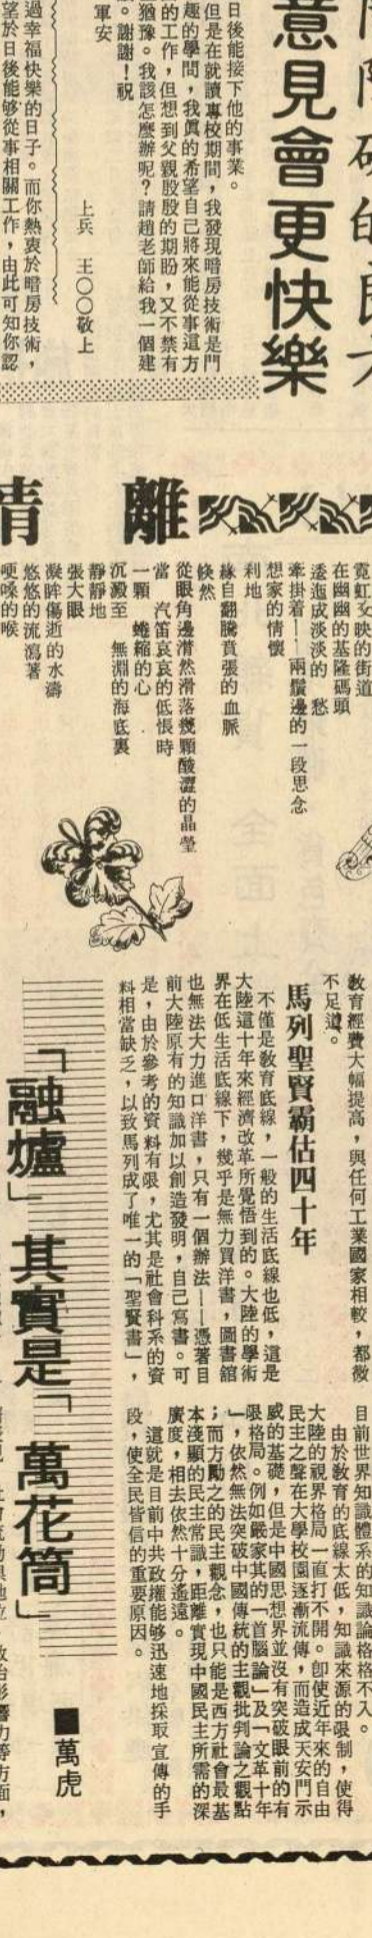 意見會更快樂
日後能接下他的事業。
但是在就讀專校期間，我發現暗房技術是門
趣的學問，我真的希望自己將來能從事這方
的工作，但想到父親殷殷的期盼，又不禁有
猶豫。我該怎麼辦呢？請趙老師給我一個建
。謝謝！祝
軍安
上兵　王〇〇敬上
過幸福快樂的日子。而你熱衷於暗房技術，
望於日後能夠從事相關工作，由此可知你認
離情
霓虹交映的街道
在幽幽的基隆碼頭
逶迤成淡淡的　愁
牽掛着——兩鬢邊的一段思念
想家的情懷
利地
緣自翻騰賁張的血脈
倏然
從眼角邊潸然滑落幾顆酸澀的晶瑩
當　汽笛哀哀的低悵時
一顆　蜷縮的心
沉澱至　無淵的海底裏
靜靜地
張大眼
凝眸傷逝的水濤
悠悠的流瀉著
哽嗓的喉
教育經費大幅提高，與任何工業國家相較，都微
不足道。
馬列聖賢霸佔四十年
不僅是教育底線，一般的生活底線也低，這是
大陸這十年來經濟改革所覺悟到的。大陸的學術
界在低生活底線下，幾乎是無力買洋書，圖書館
也無法大力進口洋書，只有一個辦法——憑著目
前大陸原有的知識加以創造發明，自己寫書。可
是，由於參考的資料有限，尤其是社會科系的資
料相當缺乏，以致馬列成了唯一的「聖賢書」，
目前世界知識體系的知識論格格不入。
由於教育的底線太低，知識來源的限制，使得
大陸的視界格局一直打不開。即使近年來的自由
民主之聲在大學校園逐漸流傳，而造成天安門示
威的基礎，但是中國思想界並沒有突破眼前的有
限格局。例如嚴家其的「首腦論」及「文革十年
」，依然無法突破中國傳統的主觀批判論之觀點
；而方勵之的民主觀念，也只能是西方社會最基
本淺顯的民主常識，距離實現中國民主所需的深
廣度，相去依然十分遙遠。
這就是目前中共政權能夠迅速地採取宣傳的手
段，使全民皆信的重要原因。
「融爐」其實是「萬花筒」
■萬虎